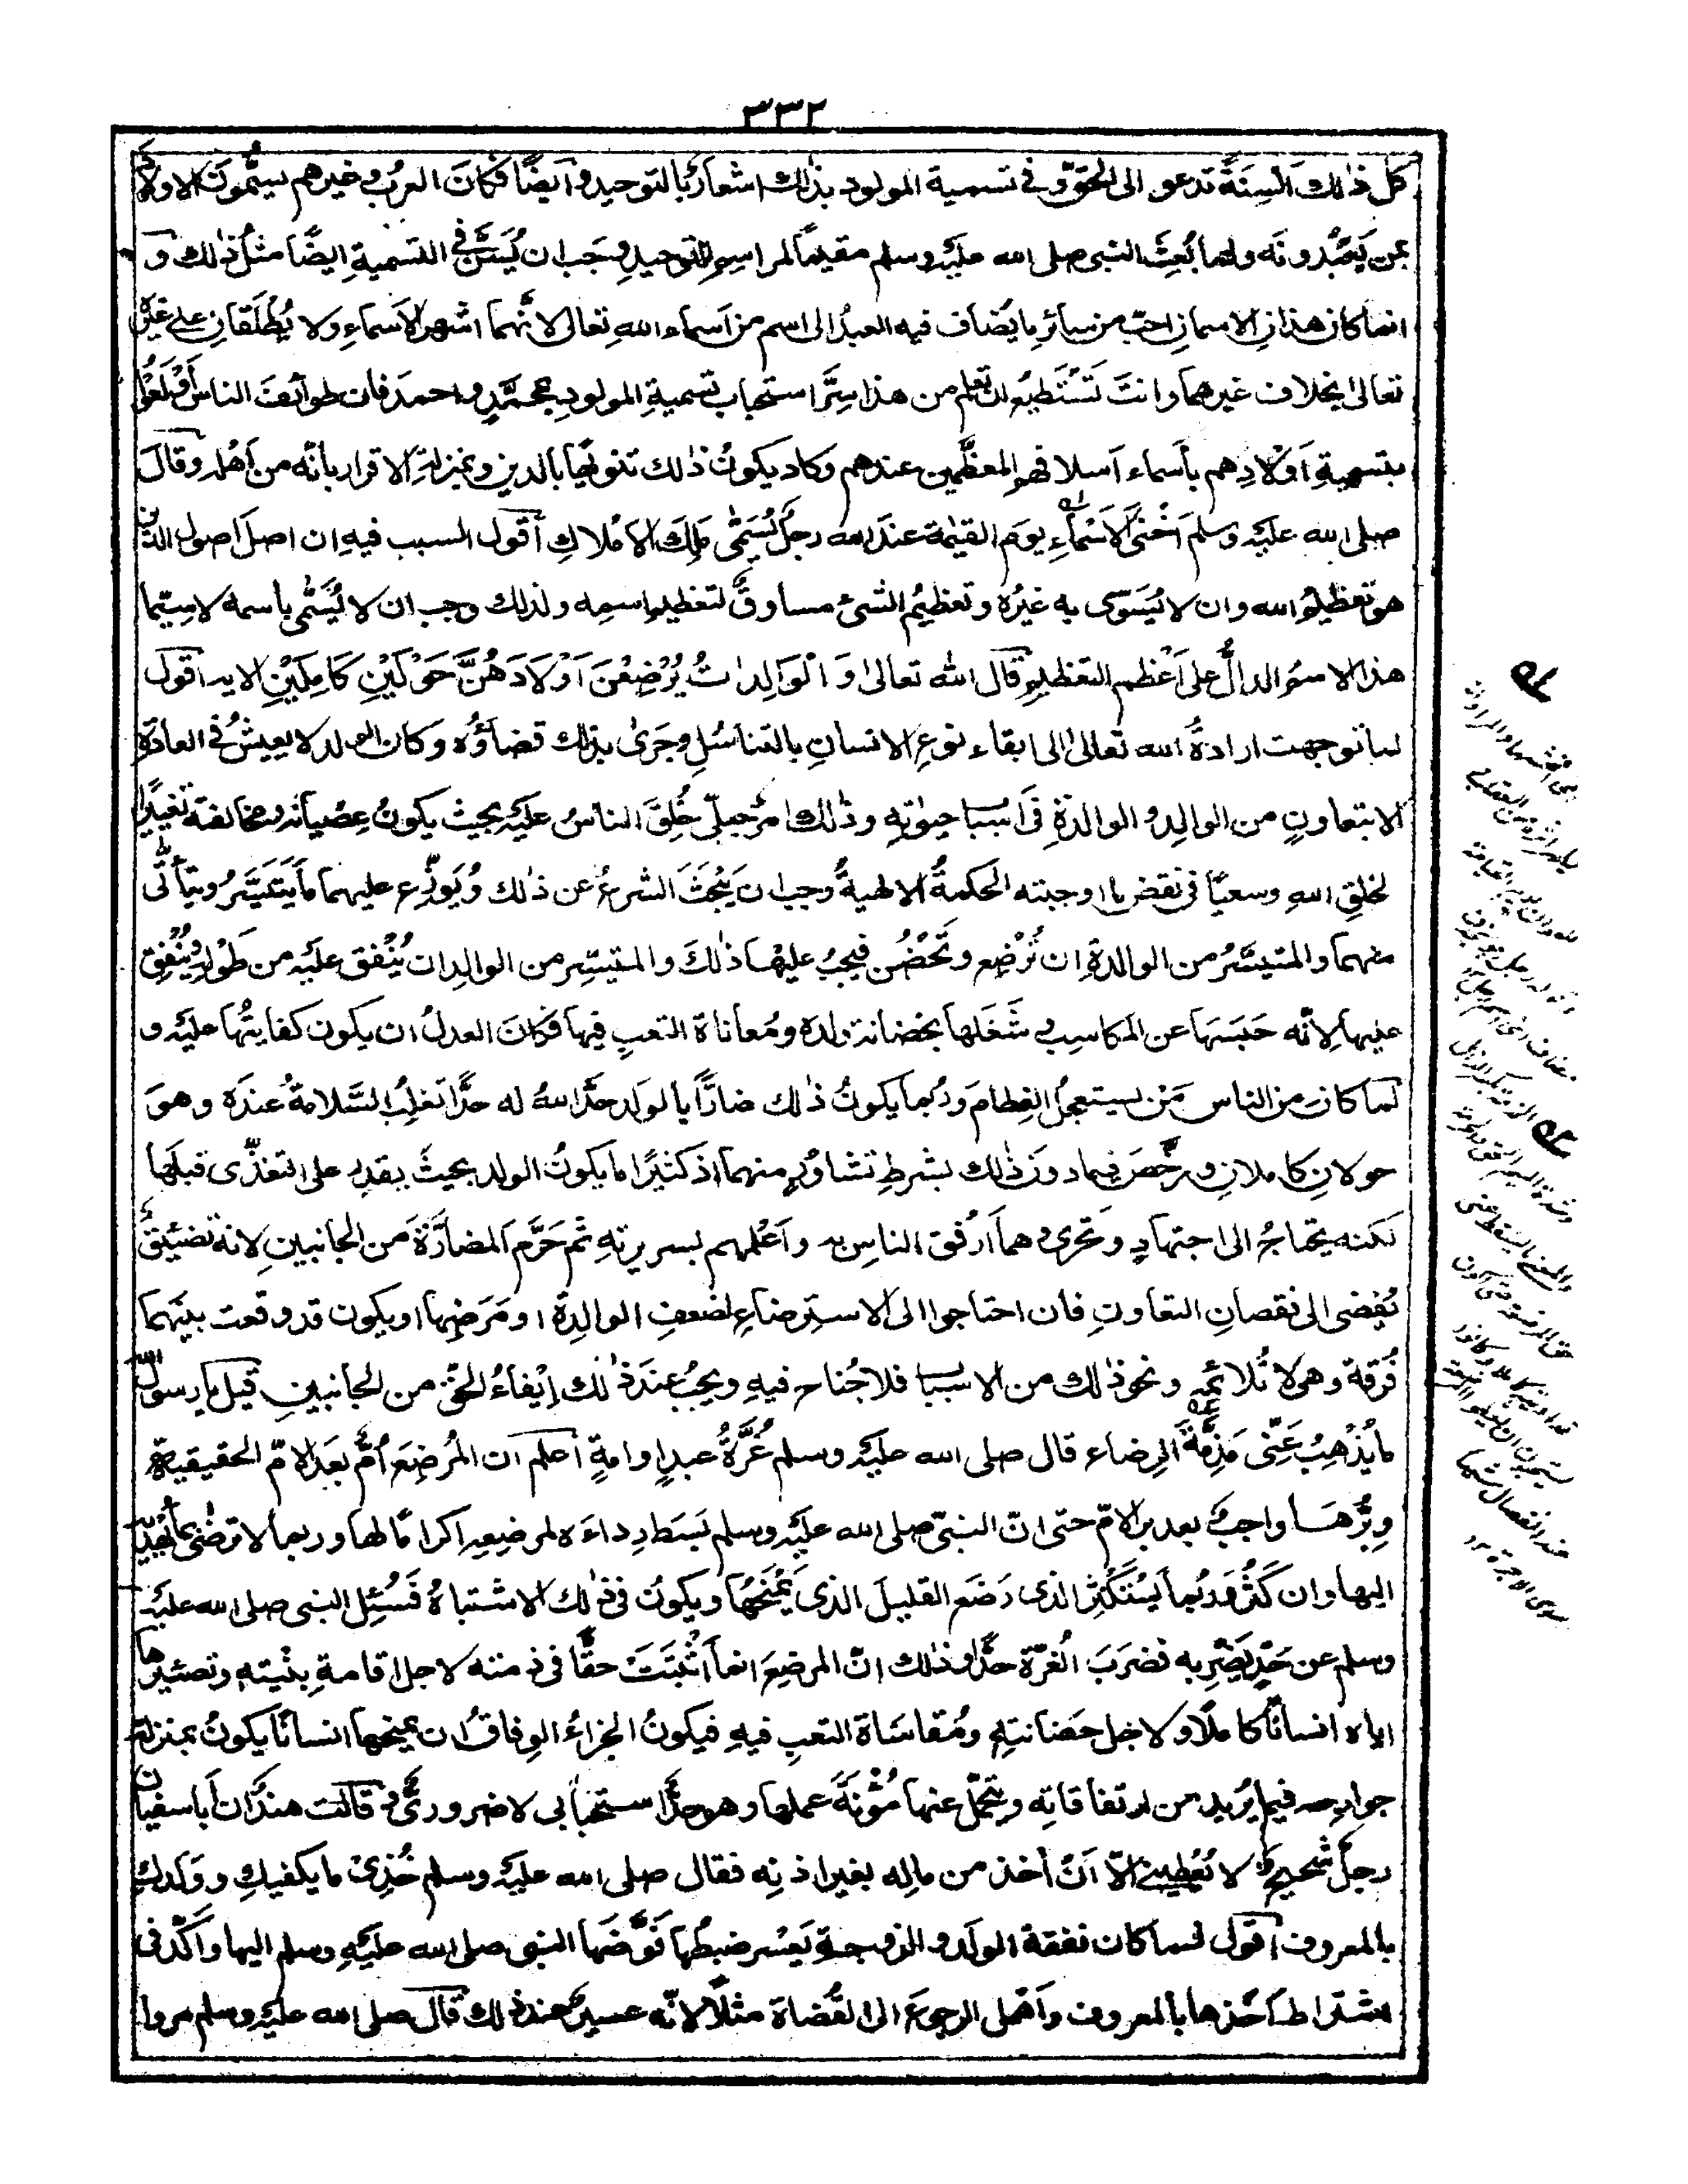 ٣٣٢
كل ذٰلك اَلْسِنَةً تدعو الى الحقّ و فى تسمية المولود بذٰلك اشعارٌ بالتوحيد و اَيضًا فَكانَ العربُ و غيرهم يسمُّونَ الاولادَ
بمن يَعبُدونَه ولما بُعِثَ النبى صلى الله عليه وسلم مقيمًا لمراسِمِ التوحيدِ وَجَبَ ان يُسَنَّ فى التسميةِ ايضًا مثلُ ذٰلك و
انما كان هذانِ الاسمانِ احبّ من سائرِ ما يُضاف فيه العبدُ الى اسم من اَسماء اللهِ تعالى لانَّهما اشهر الاَسماءِ ولا يُطْلَقانِ على غيرِه
تعالىٰ بخلاف غيرهما وانتَ تَسْتَطيعُ ان تعلم من هذا سِرَّ استحباب تسميةِ المولودِ بمحمَّدٍ و احمدَ فان طوائفَ الناس اُوْلِعُوْا
بتسميةِ اَوْلادِهم بأسماء اَسلافهم المعظَّمين عندهم وكاد يكونُ ذٰلك تنويهًا بالدينِ وبمنزلةِ الاقرار بأنّه من اَهْله وقالَ
صلى الله عليه وسلمَ اَخْنَى الاَسْماءِ يومَ القيٰمة عندَ الله رجلٌ يُسَمّٰى مَلِكَ الاَمْلاكِ أقول السبب فيه ان اصلَ اصول الدين
هو تعظيمُ الله وان لا يُسَوّى به غيرُه و تعظيمُ الشئ مساوقٌ لتعظيم اسمِه ولذلك وجب ان لا يُسَمّٰى باسمه لاسيّما
هذا الاسمُ الدالُّ على اَعْظم التعظيمِ قال الله تعالىٰ وَ الْوَالِدٰاتُ يُرْضِعْنَ اَوْلَادَهُنَّ حَوْلَيْنِ كَامِلَيْنِ الايه اقول
لما توجهت ارادةُ الله تعالىٰ الى ابقاء نوعِ الانسانِ بالتناسُلِ وجَرىٰ بذٰلك قضاؤُه وكان الولد لا يعيشُ فى العادةِ
الا بتعاونٍ من الوالِد و الوالدةِ فى اَسباب حيوٰتهِ وذٰلك امرٌ جبلّىٌ خُلِقَ الناسُ عليه بحيث يكونُ عِصْيانه ومخالفة تغييرًا
لخلقِ اللهِ وسعيًا فى نقض ما اوجبته الحكمةُ الالٰهيةُ وجب ان يَبْحَثَ الشرعُ عن ذٰلك ويُوزِّع عليهما ما يَتَيَسَّرُ ويتأتّٰى
منهما والمتيسَّرُ من الوالدةِ ان تُرْضِع و تَحْضُن فيجبُ عليها ذٰلكَ والمتيسّر من الوالِد ان يُنْفق عليْه من طَوْلِه ويُنْفِق
عليها لِانّه حَبَسَها عن المكاسِب و شَغَلَها بحضانة ولدِه ومُعاناة التعبِ فيها فكانَ العدلُ ان يكون كفايتُها عليه و
لما كانَ من الناس مَنْ يستعجلُ الفِطامَ ورُبما يكونُ ذٰلك ضارًّا بالولد حَدَّ اللهُ له حدًّا تغلِبُ السَّلامةُ عندَه وهوَ
حولانِ كاملانِ و رخّصَ فيما دونَ ذٰلك بشرطِ تشاوُرٍ منهما اذ كثيرًا ما يكونُ الولد بحيثُ يقدِرُ على التغذّى قبلَها
لكنه يحتاجُ الى اجتهادٍ وتحرىٍ وهما اَرْفق الناسِ به واَعْلمهم بسريرتِه ثم حَرَّم المضارَّةَ من الجانبينِ لانه تضييقٌ
يُفضى الى نقصانِ التعاونِ فان احتاجوا الى الاستِرضاعِ لضعفِ الوالِدة او مَرَضِها او يكون قد وقعت بينَهما
فُرقة وهى لا تُلائمه ونحو ذٰلك من الاسباب فلا جُناح فيهِ ويجبُ عندَ ذٰلك إيْفاءُ الحقّ من الجانبينِ قيلَ يا رسولَ الله
ما يُذْهِبُ عَنِّى مَذِمَّةَ الرِضاع قال صلى الله عليه وسلم غُرَّةُ عبدٍ او امةٍ اعلم ان المُرضِعَ اُمٌّ بعدَ الامّ الحقيقيةِ
وبِرُّها واجبٌ بعد برّ الامّ حتى انّ النبىّ صلى الله عليه وسلم بَسَطَ رِداءَه لمرضِعِه اكرامًا لها وربما لا ترضٰى بما يُهْدِيْه
اليها وان كَثُرَ ورُبما يَسْتكْثِر الذى رَضَع القليلَ الذى يَمْنَحُها ويكونُ فى ذٰلك الاشتباهُ فَسُئِل النبى صلى الله عليه
وسلم عن حَدٍّ يَضْرِبه فضرَبَ الغُرّة حدًّا وذٰلك انّ المرضِعَ انما اَثْبَتَتْ حقًّا فى ذمته لاجل اقامةِ بِنْيته وتصييرها
اياه انسانًا كاملًا ولاجل حَضانتِه ومُقاسَاة التعبِ فيهِ فيكونُ الجزاءُ الوِفاقُ ان يمنحها انسانًا يكونُ بمنزلة
جوارحه فيما يُريد من ارتفاقاتِه ويتحمّل عنها مُؤْنَةَ عملها وهو حدٌّ استحبابى لا ضرورىٌّ قالت هندٌ ان ابا سفيان
رجلٌ شحيحٌ لا يُعْطينى الاّ اَنْ اٰخذ من مالِه بغير اذنِه فقال صلى الله عليه وسلم خُذِىْ ما يكفيكِ ووَلَدَكِ
بالمعروف اقول لما كان نفقة الولَد و الزوجة يَعسُر ضبطُها فَوَّضَها النبى صلى الله عليهِ وسلم اليها واَكَّد فى
اشتراط اَخْذها بالمعروف واَهْمل الرجوعَ الى القُضاة مثلًا لانّه عسيرٌ عند ذٰلك قال صلى الله عليه وسلم مروا